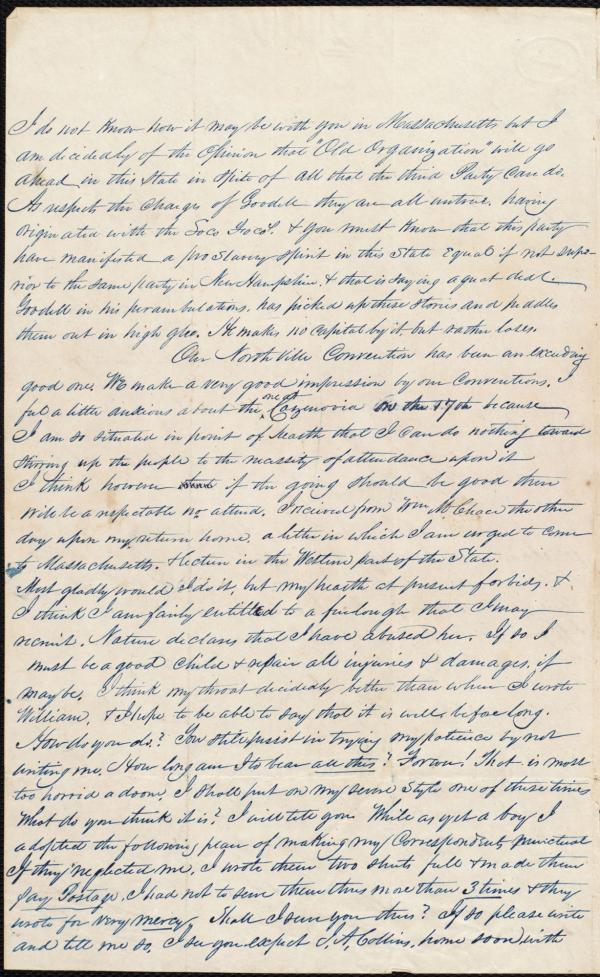 I do not know how it may be with you in Massachusetts but I
am decidedly of the opinion that "Old Organization" will go
ahead in this State in spite of all that the third Party can do.
As respects the charges of Goodell they are all untrue, having
originated with the Loco Foco's. & you must know that this party
have manifested a pro slavery spirit in this State equal if not supe-
rior to the same party in New Hampshire. & that is saying a great deal.
Goodell in his perambulations, has picked up these stories and peddles
them out in high glee. He makes no capital by it but rather loses.
Our Northville Convention has been an exceeding
good one. We make a very good impression by our Conventions. I
feel a little anxious about the one at Cazenovia on the 17th because
I am so situated in point of health that I can do nothing toward
stirring up the people to the necessity of attendance upon it
I think however if the going should be good there
will be a respectable no attend. I received from Wm M. Chace the other
day upon my return home, a letter in which I am urged to come
to Massachusetts. & lecture in the Western part of the State.
Most gladly would I do it, but my health at present forbids. &
I think I am fairly entitled to a furlough that I may
recruit. Nature declares that I have abused her. If so I
must be a good child & repair all injuries & damages, if
maybe. I think my throat decidedly better than when I wrote
William, & I hope to be able to say that it is well, before long.
How do you do? You still persist in trying my patience by not
writing me. How long am I to bear all this? Forever! That is most
too horrid a doom. I shall put on my severe style one of these times
What do you think it is? I will tell you While as yet a boy I
adopted the following plan of making my Correspondents punctual
If they neglected me, I wrote them two sheets full & made them
pay Postage. I had not to serve them thus more than 3 times & they
wrote for very mercy. Shall I serve you thus? If so please write
and tell me so. I see you expect J. A. Collins, home soon, with